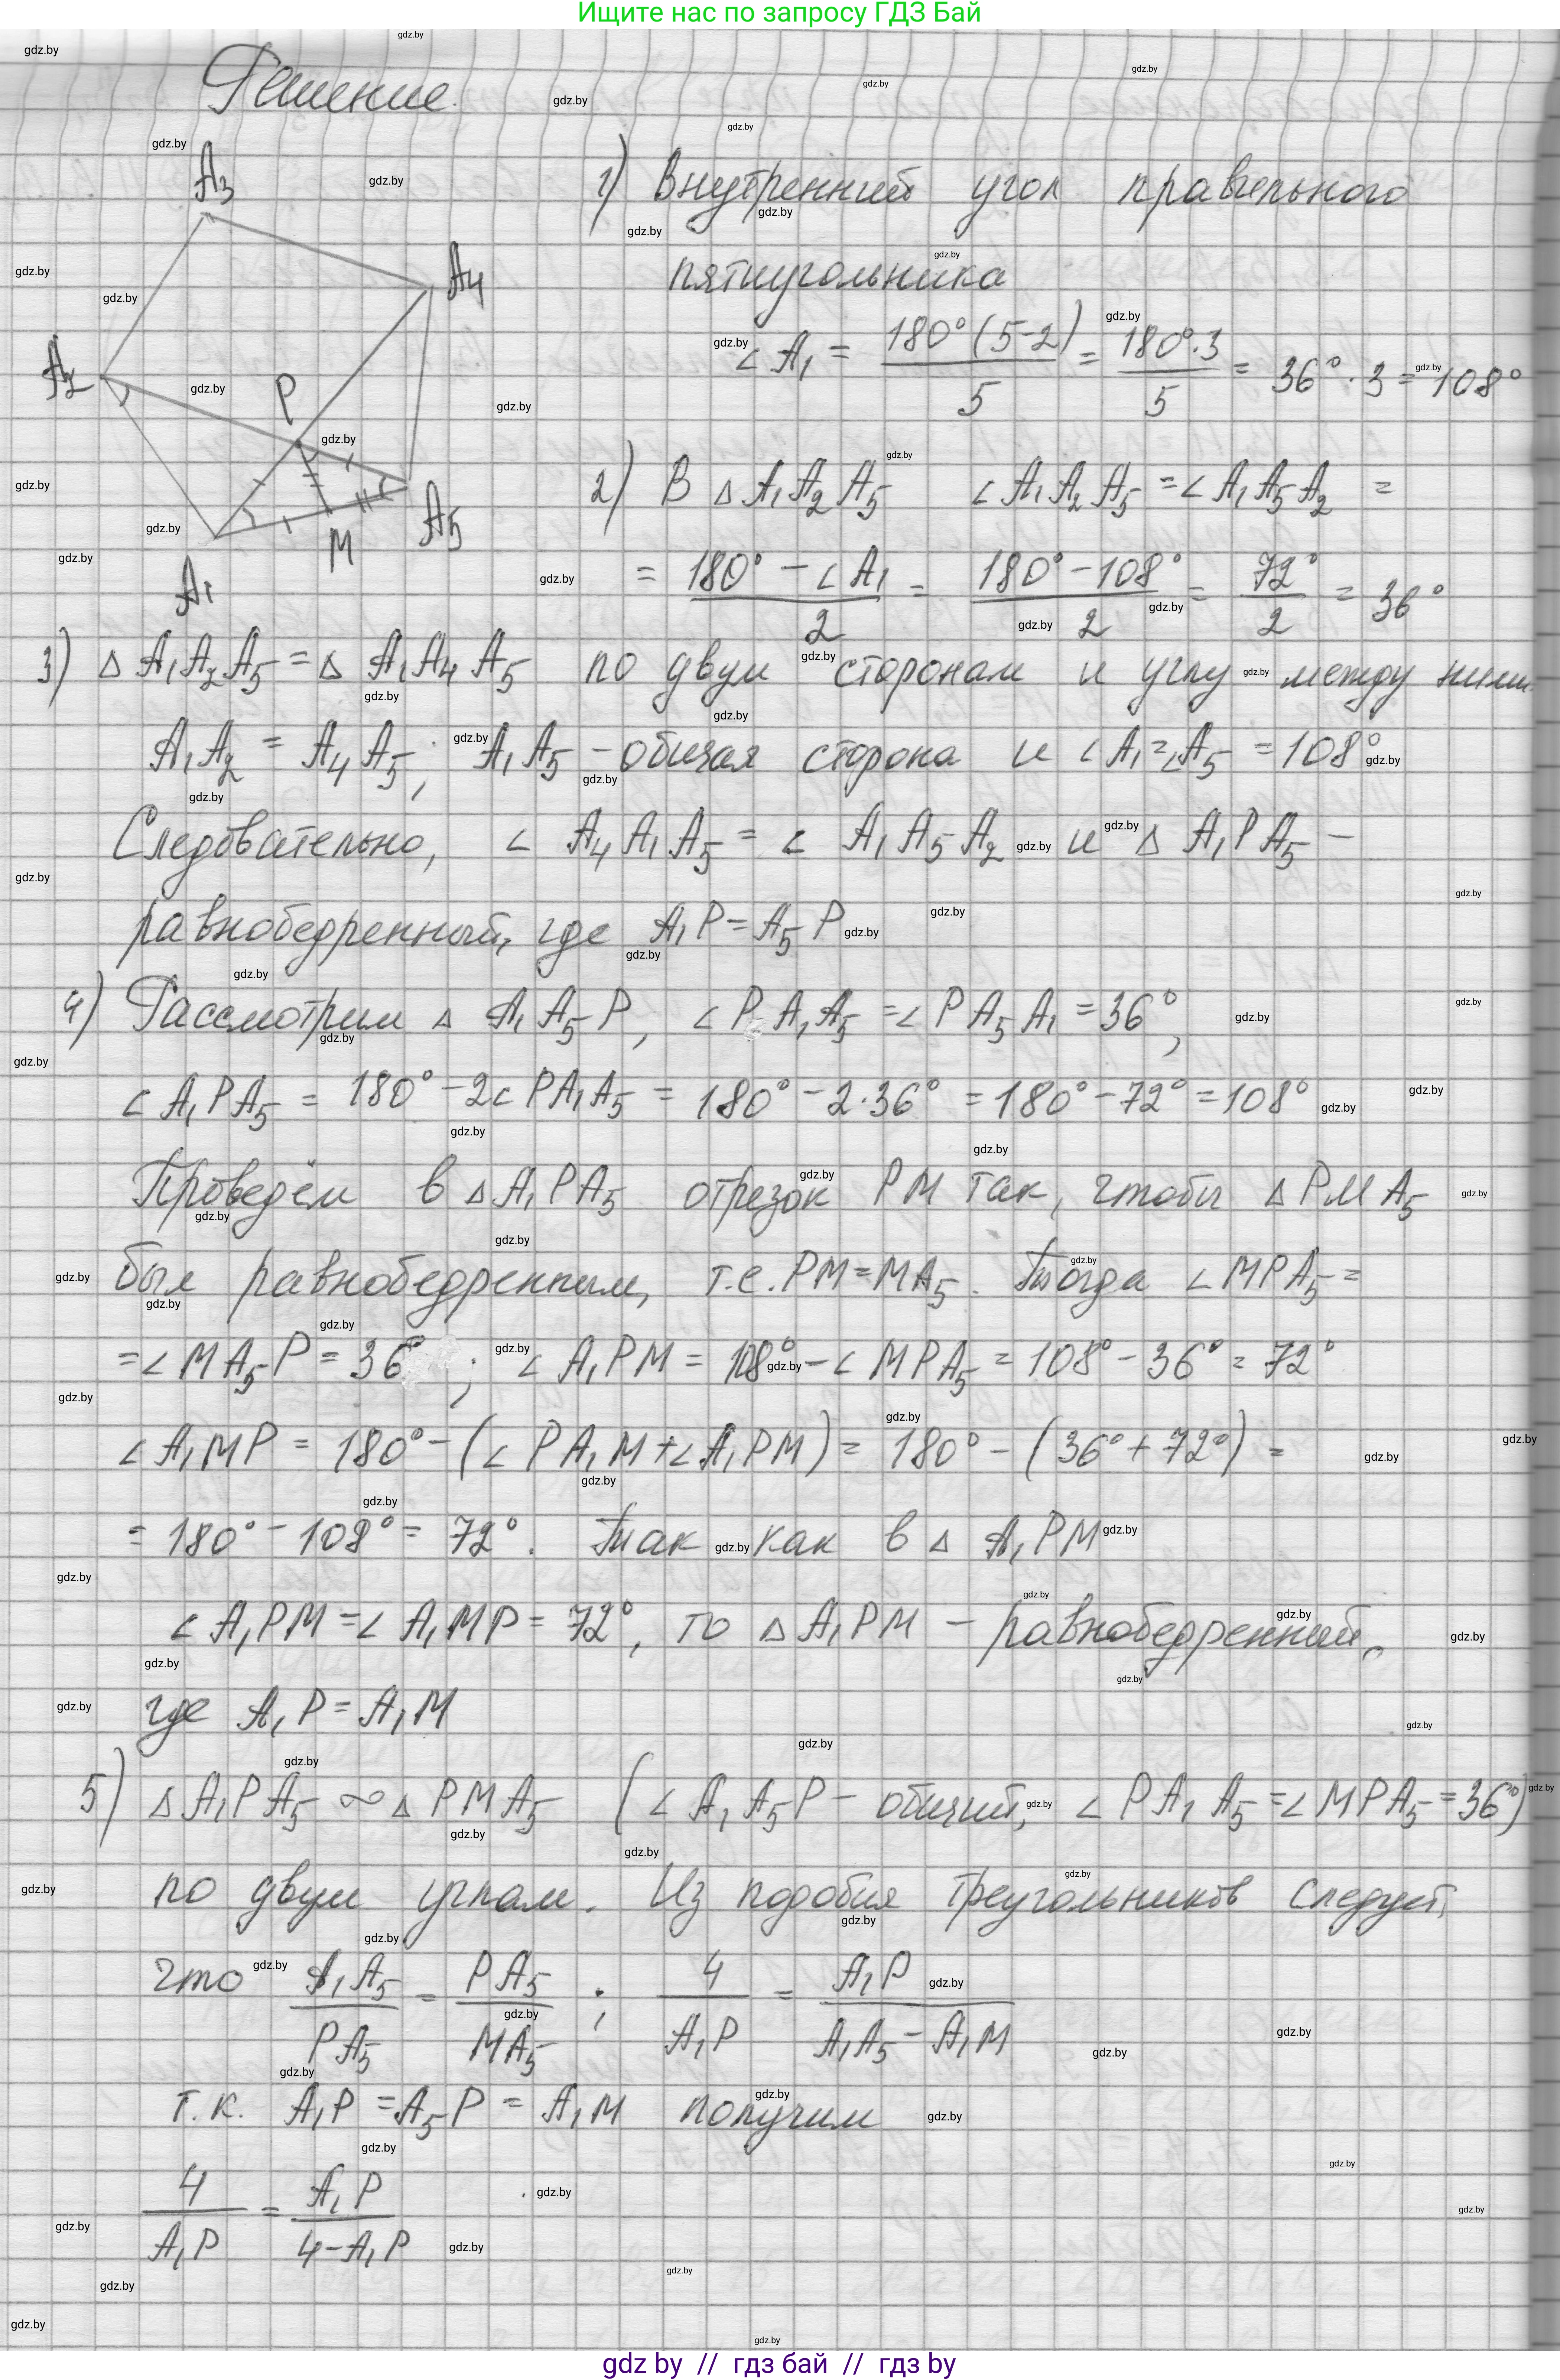 Ищите нас по запросу ГДЗ Бай
Решение.
A3
A4
A2
P
A5
M
A1
1) Внутренний угол правильного
пятиугольника
∠A1 = 180°(5-2)/5 = 180°·3/5 = 36°·3 = 108°
2) В △A1A2A5 ∠A1A2A5 = ∠A1A5A2 =
= (180° - ∠A1)/2 = (180° - 108°)/2 = 72°/2 = 36°
3) △A1A2A5 = △A1A4A5 по двум сторонам и углу между ними.
A1A2 = A4A5; A1A5 - общая сторона и ∠A1 = ∠A5 = 108°
Следовательно, ∠A4A1A5 = ∠A1A5A2 и △A1PA5 -
равнобедренный, где A1P = A5P
4) Рассмотрим △A1A5P, ∠PA1A5 = ∠PA5A1 = 36°,
∠A1PA5 = 180° - 2∠PA1A5 = 180° - 2·36° = 180° - 72° = 108°
Проведём в △A1PA5 отрезок PM так, чтобы △PMA5
был равнобедренным, т.е. PM = MA5. Тогда ∠MPA5 =
= ∠MA5P = 36°; ∠A1PM = 108° - ∠MPA5 = 108° - 36° = 72°
∠A1MP = 180° - (∠PA1M + ∠A1PM) = 180° - (36° + 72°) =
= 180° - 108° = 72°. Так как в △A1PM
∠A1PM = ∠A1MP = 72°, то △A1PM - равнобедренный,
где A1P = A1M
5) △A1PA5 ∞ △PMA5 (∠A1A5P - общий, ∠PA1A5 = ∠MPA5 = 36°)
по двум углам. Из подобия треугольников следует,
что A1A5/PA5 = PA5/MA5; 4/A1P = A1P/(A1A5 - A1M)
т.к. A1P = A5P = A1M получим
4/A1P = A1P/(4 - A1P)
gdz by // гдз бай // гдз by